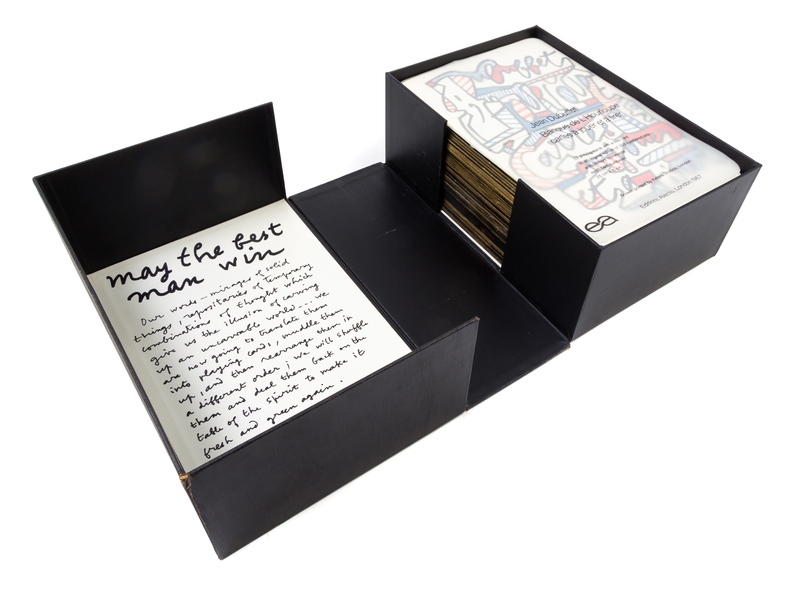 may the best
man win
Our words – mirages of solid
things, repositaries of temporary
combinations of thought which
give us the illusion of carving
up an uncarvable world... we
are now going to translate them
into playing cards, muddle them
up, and then rearrange them in
a different order; we will shuffle
them and deal them back on the
table of the spirit to make it
fresh and green again.
Jean Dubuffet
Banque de L'Hourloupe
cartes à jouer et à tirer
Editions Alecto London 1967
ea